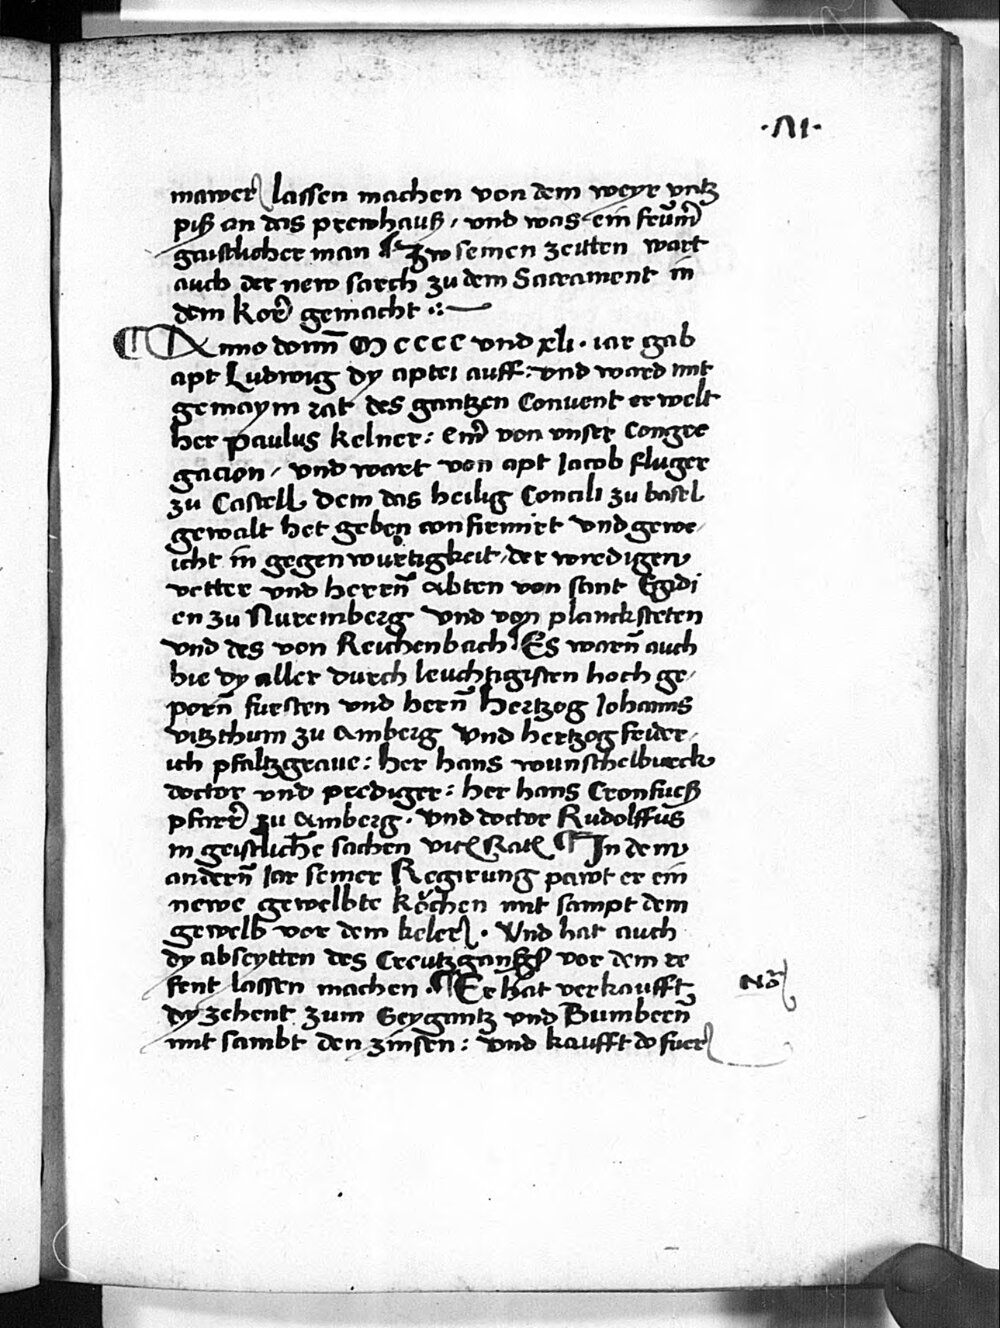 ·VI·
mawer lassen machen von dem weyr vntz
piß an das prewhauß, vnd was ein frum̃
gaistlicher man ¶ Zw seinen zeitten wart
auch der new sarch zu dem Sacrament in
dem Kor gemacht
¶ Anno domī M cccc vnd xli · iar gab
apt Ludwig dy aptei auff: vnd ward mit
gemaym rat des gantzen Conuent erwelt
her paulus kelner: einer von vnser Congre
gacion, vnd wart von apt Jacob fluger
zu Castell dem das heilig Concili zu basel
gewalt het geben confirmirt vnd gewe,
icht in gegenwurtzigkeit, der wirdigen
vetter vnd herrn̄ Abten von sant Egidi
en zu Nuremberg vnd von plancksteten
vnd des von Reichenbach ¶ Es warn̄ auch
hie dy aller durch leuchtigisten hoch ge,
porn̄ fursten vnd hern̄ Hertzog Johanns
vitzthum zu Amberg vnd hertzog frider,
ich pfaltzgraue: her hans wunschelburck
doctor vnd prediger: her hans Cronfueß
pfarer zu Amberg · vnd doctor Rudolffus
in geistliche sachen Rat ¶ In dem
andern̄ Jar seiner Regirung pawt er ein
newe gewelbte kŏchen mit sampt dem
gewelb vor dem keler · Vnd hat auch
dy abseytten des Creutzgangs vor dem re
fent lassen machen · ¶ Er hat verkaufft
dy zehent zum Geygantz vnd Bumbern̄
mit sambt den zinsen: vnd kaufft do fuer